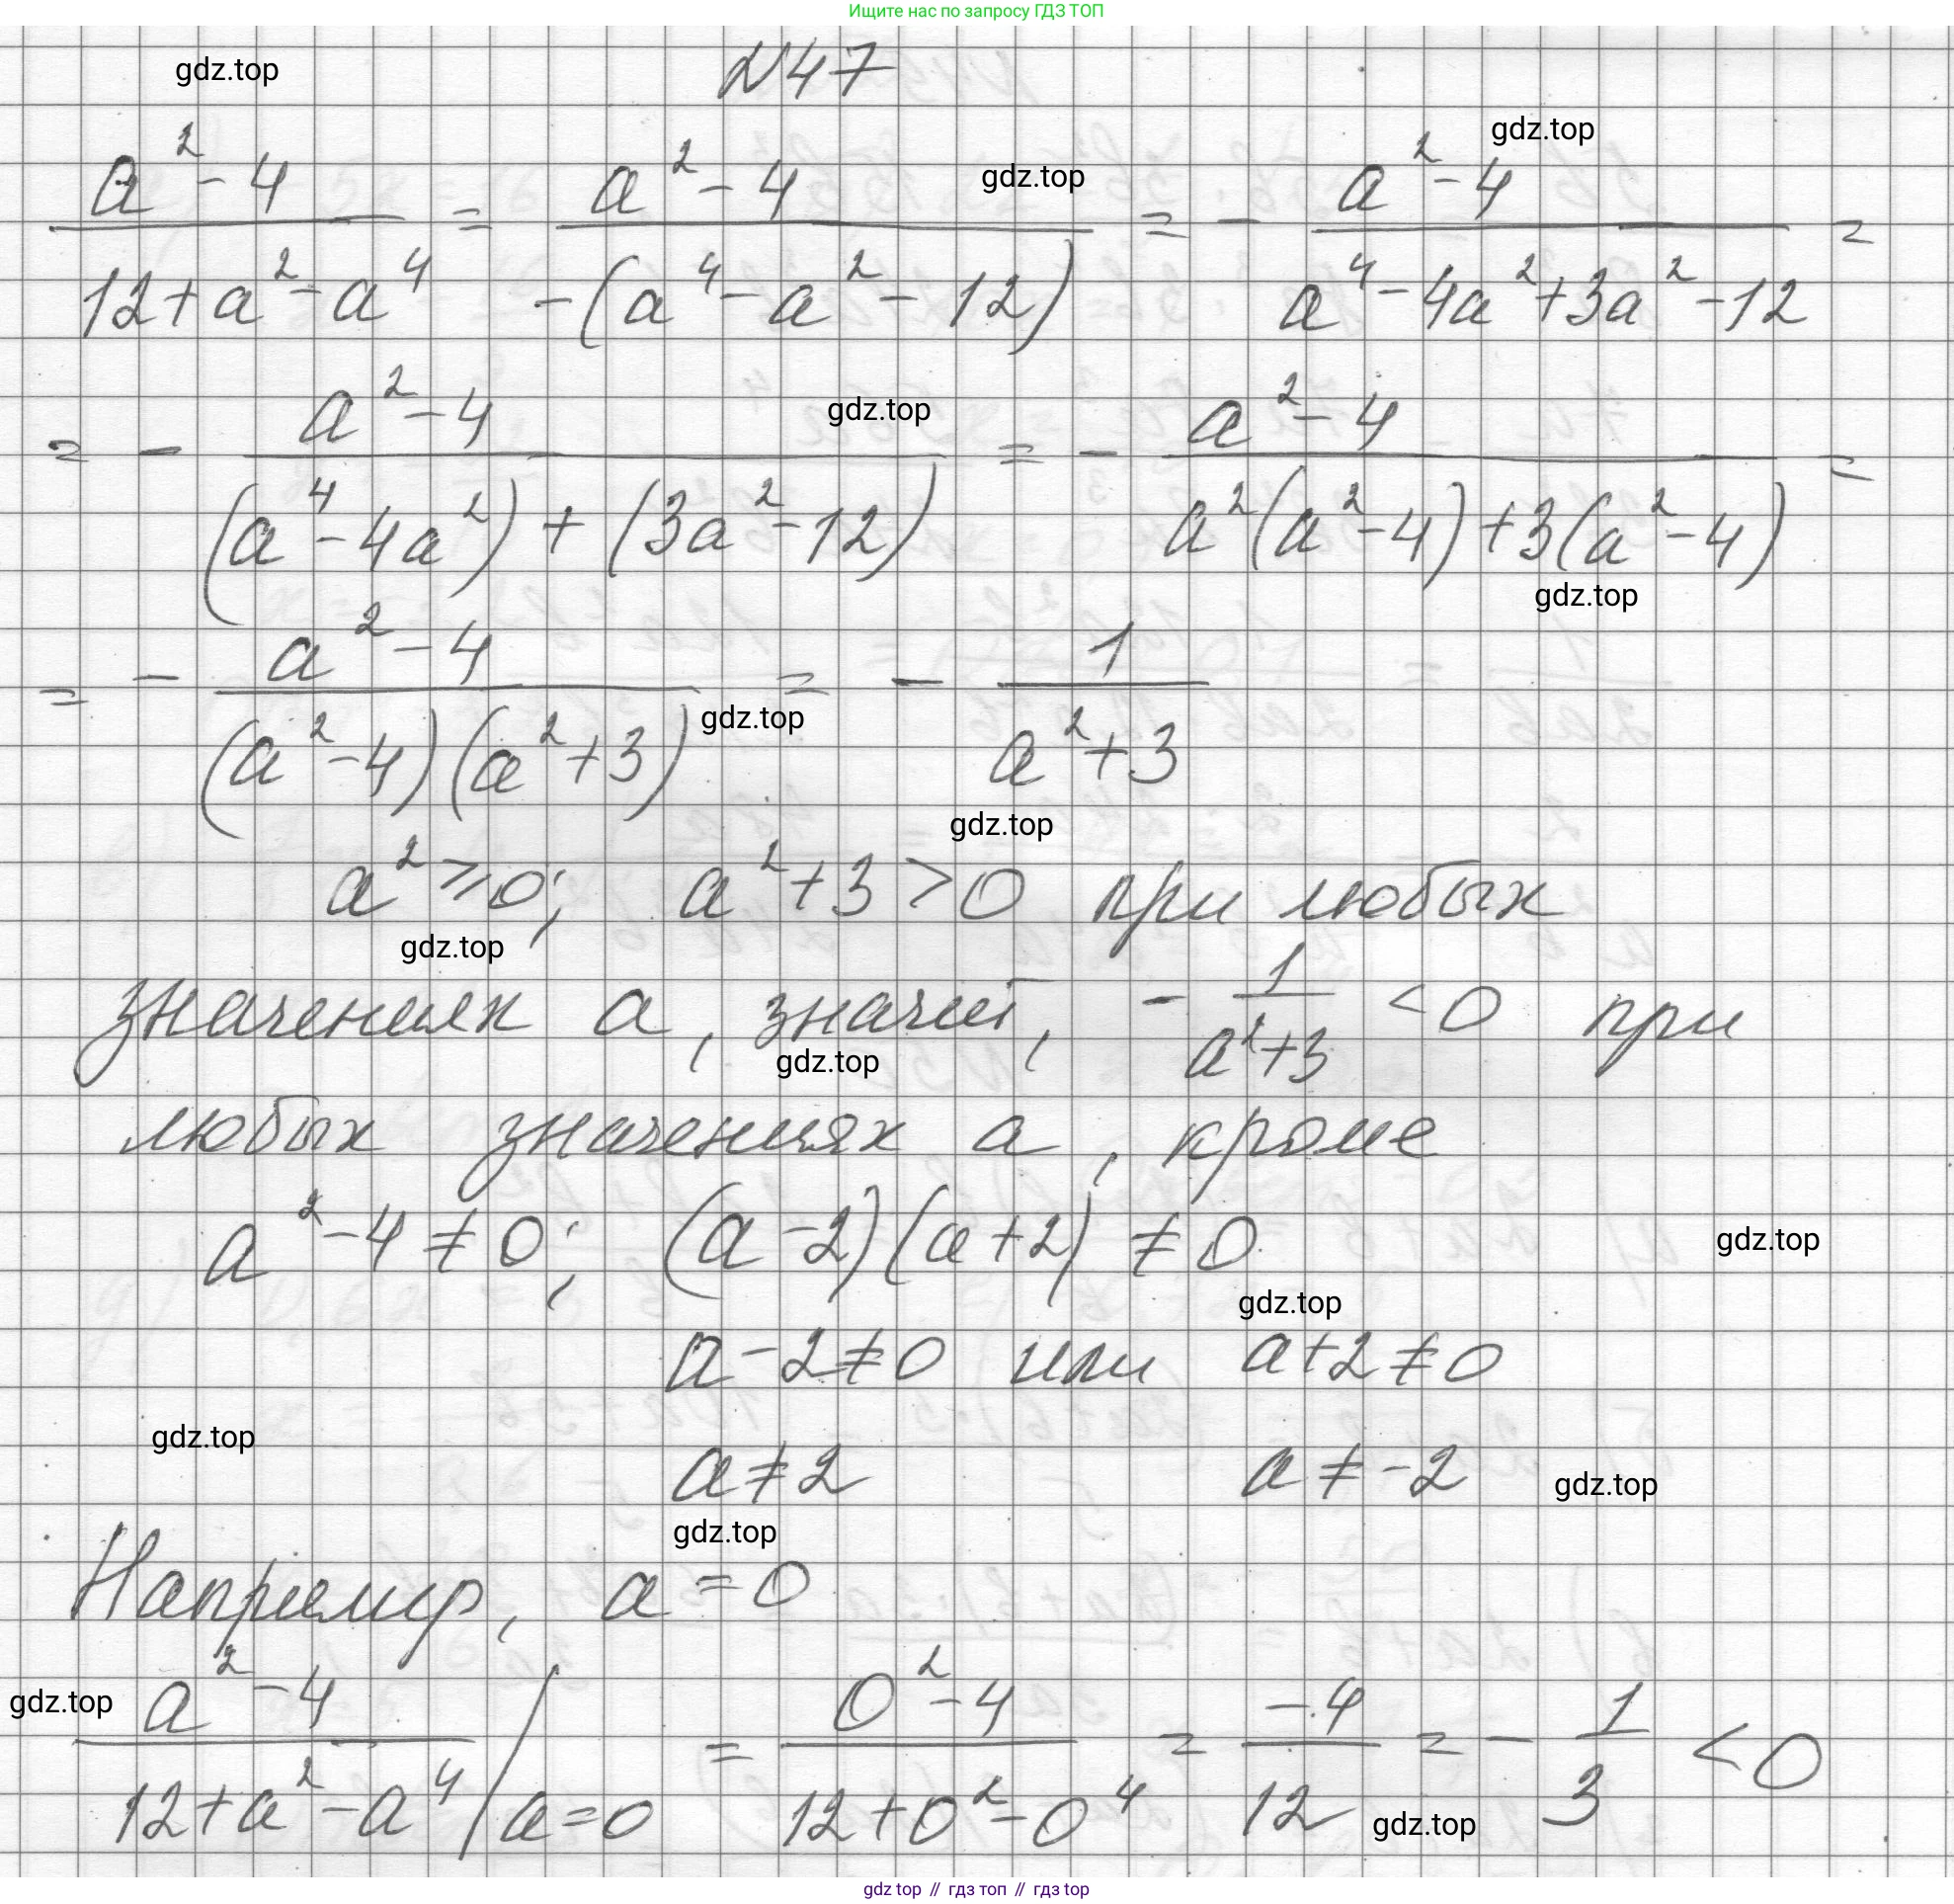 Ищите нас по запросу ГДЗ ТОП
gdz.top
№47
gdz.top
(a²-4)/(12+a²-a⁴) = (a²-4)/(-(a⁴-a²-12)) = -(a²-4)/(a⁴-4a²+3a²-12) =
gdz.top
gdz.top
= -(a²-4)/((a⁴-4a²)+(3a²-12)) = -(a²-4)/(a²(a²-4)+3(a²-4)) =
gdz.top
= -(a²-4)/((a²-4)(a²+3)) = -1/(a²+3)
gdz.top
gdz.top
a²⩾0; a²+3>0 при любых
gdz.top
значениях a, значит, -1/(a²+3) <0 при
gdz.top
любых значениях a, кроме
a²-4≠0; (a-2)(a+2)≠0
gdz.top
gdz.top
a-2≠0 или a+2≠0
gdz.top
a≠2 a≠-2
gdz.top
gdz.top
Например, a=0
gdz.top
(a²-4)/(12+a²-a⁴) /a=0 = (0²-4)/(12+0²-0⁴) = -4/12 = -1/3 <0
gdz.top
gdz top // гдз топ // гдз top